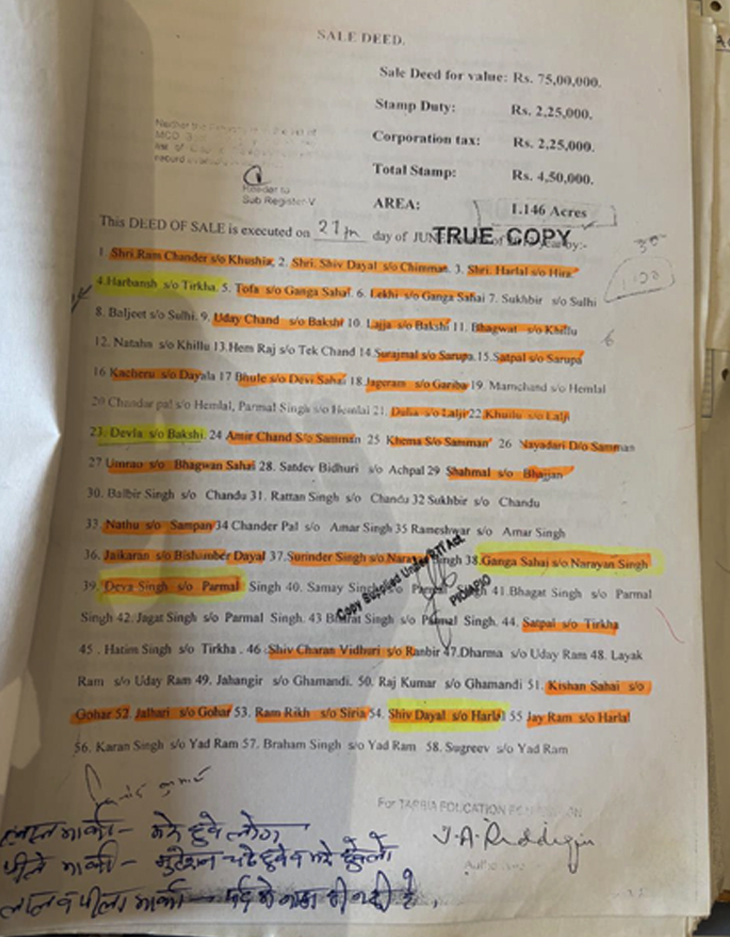 SALE DEED.
Sale Deed for value: Rs. 75,00,000.
Stamp Duty: Rs. 2,25,000.
Corporation tax: Rs. 2,25,000.
Total Stamp: Rs. 4,50,000.
Sub Register-V
AREA: 1.146 Acres
This DEED OF SALE is executed on day of JUNE by:-
TRUE COPY
1. Shri Ram Chander s/o Khushia, 2. Shri. Shiv Dayal s/o Chimman. 3. Shri. Harlal s/o Hira.
4.Harbansh s/o Tirkha. 5. Tofa s/o Ganga Sahai. 6. Lekhi s/o Ganga Sahai 7. Sukhbir s/o Sulhi
8. Baljeet s/o Sulhi. 9. Uday Chand s/o Bakshi 10. Lajja s/o Bakshi 11. Bhagwat s/o Khillu
12. Natahn s/o Khillu 13.Hem Raj s/o Tek Chand 14.Surajmal s/o Sarupa. 15.Satpal s/o Sarupa
16 Kacheru s/o Dayala 17 Bhule s/o Devi Sahai 18.Jageram s/o Gariba 19. Mamchand s/o Hemlal
20 Chandar pal s/o Hemlal, Parmal Singh s/o Hemlal 21. s/o Lalji 22 s/o Lalji
23. Devla s/o Bakshi. 24 Amir Chand S/o Samman 25 Khema S/o Samman 26 Nayadari D/o Samman
27 Umrao s/o Bhagwan Sahai 28. Satdev Bidhuri s/o Achpal 29 Shahmal s/o Bhajjan
30. Balbir Singh s/o Chandu 31. Rattan Singh s/o Chandu 32 Sukhbir s/o Chandu
33. Nathu s/o Sampan 34 Chander Pal s/o Amar Singh 35 Rameshwar s/o Amar Singh
36. Jaikaran s/o Bishamber Dayal 37.Surinder Singh s/o Singh 38.Ganga Sahai s/o Narayan Singh
39. Deva Singh s/o Parmal Singh 40. Samay Singh s/o Singh 41.Bhagat Singh s/o Parmal
Singh 42. Jagat Singh s/o Parmal Singh. 43 Bharat Singh s/o Parmal Singh. 44. Satpal s/o Tirkha
Copy Supplied Under RTI Act.
PIO/APIO
45 . Hatim Singh s/o Tirkha . 46 .Shiv Charan Vidhuri s/o Ranbir 47.Dharma s/o Uday Ram 48. Layak
Ram s/o Uday Ram 49. Jahangir s/o Ghamandi. 50. Raj Kumar s/o Ghamandi 51. Kishan Sahai s/o
Gohar 52. Jalhari s/o Gohar 53. Ram Rikh s/o Siria 54. Shiv Dayal s/o Harlal 55 Jay Ram s/o Harlal
56. Karan Singh s/o Yad Ram 57. Braham Singh s/o Yad Ram 58. Sugreev s/o Yad Ram
लाल मार्का - मरे हुवे लोग
पीले मार्का -
लाल व पीला मार्का -